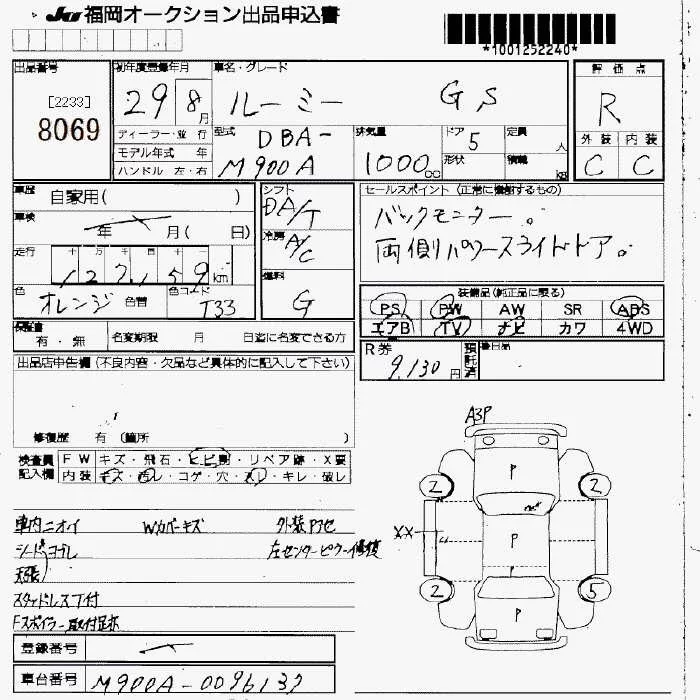 JU 福岡オークション出品申込書
*1001252240*
出品番号
[2233]
8069
初年度登録年月
29 8月
車名・グレード
ルーミー GS
評価点
R
外装 内装
C C
ディーラー・並行
モデル年式 年
ハンドル 左・右
型式
DBA-
M900A
排気量
1000cc
ドア
5
形状
定員
人
積載
kg
車歴 自家用( )
車検 年 月( 日)
走行 十 万 千 百 十
127,159km
色 オレンジ 色替
色コード T33
シフト
DA/T
冷房
A/C
燃料
G
セールスポイント(正常に機動するもの)
バックモニター。
両側パワースライドドア。
装備品(純正品に限る)
PS PW AW SR ABS
エアB TV ナビ カワ 4WD
保証書
有・無
名変期限 月 日迄に名変できる方
R券
9,130円
預託済
後日品
出品店申告欄(不良内容・欠品など具体的に記入して下さい)
修復歴 有 (箇所 )
検査員
記入欄
FW キズ・飛石・ヒビ割・リペア跡・X要
内装 キズ・汚レ・コゲ・穴・スレ・キレ・破レ
車内ニオイ Wカバーキズ 外装Pアセ
シートヨゴレ 左センターピラー修復
天張
スタッドレス下付
Fスポイラー取付足赤
登録番号
車台番号 M900A-0096137
A3P
P
2 2
XX
P
2 5
P